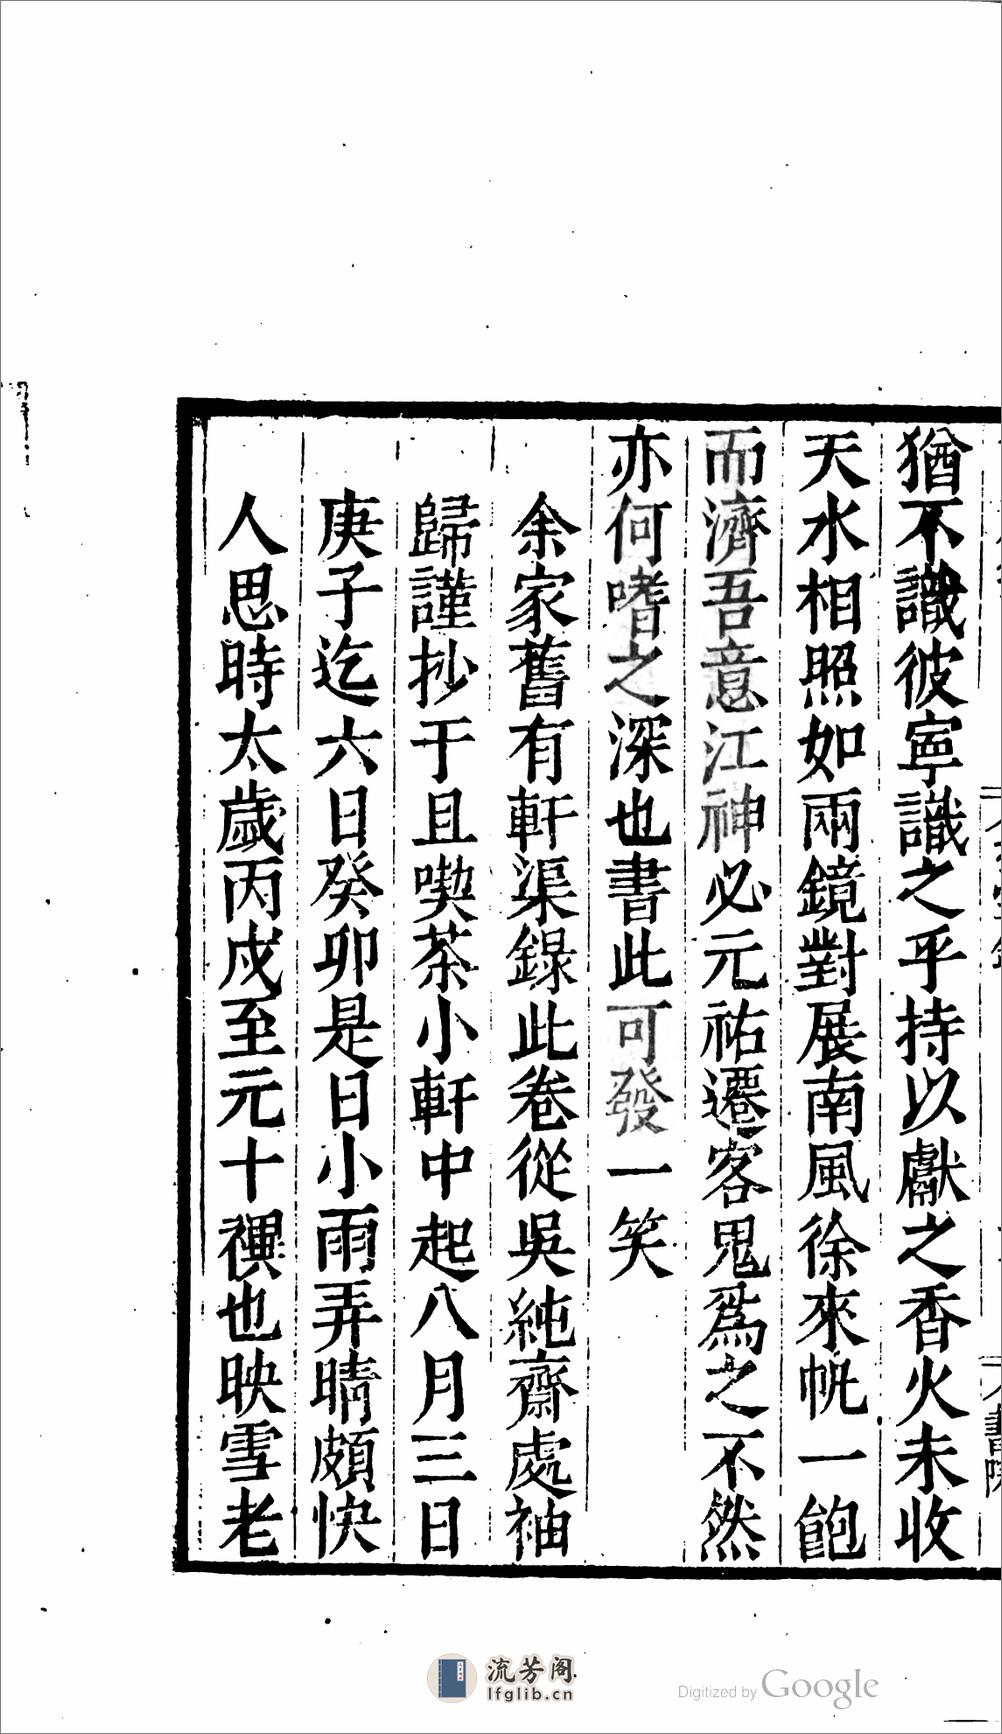 猶不識彼寧識之乎持以獻之香火未收
天水相照如兩鏡對展南風徐來帆一飽
而濟吾意江神必元祐遷客鬼爲之不然
亦何嗜之深也書此可發一笑
余家舊有軒渠錄此卷從吳純齋處袖
歸謹抄于且喫茶小軒中起八月三日
庚子迄六日癸卯是日小雨弄晴頗快
人思時太歲丙戌至元十禩也映雪老
流芳阁
lfglib.cn
Digitized by Google